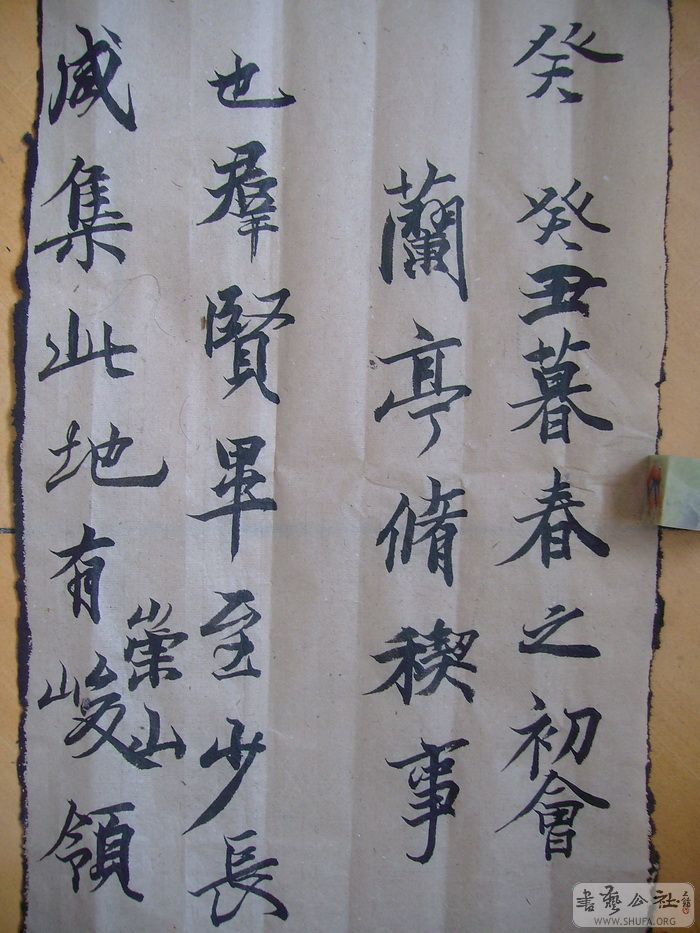 癸癸丑暮春之初會
蘭亭脩稧事
也羣賢畢至少長
咸集此地有峻領
崇山
書藝公社
WWW.SHUFA.ORG